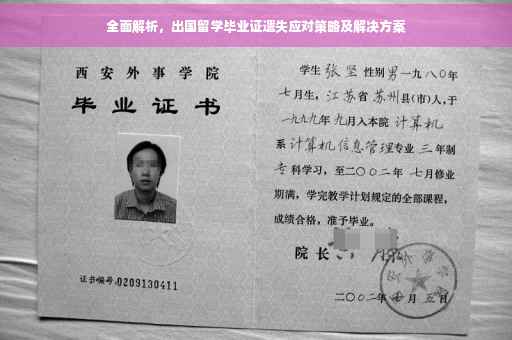 全面解析，出国留学毕业证遗失应对策略及解决方案
西安外事学院
毕业证书
证书编号:0209130411
学生 张坚 性别男一九八〇年
七月生，江苏省 苏州县(市)人,于
一九九九年 九月入本院 计算机
系 计算机信息管理专业 三 年制
专 科学习，至二〇〇二年 七月修业
期满，学完教学计划规定的全部课程，
成绩合格，准予毕业。
院 长
二〇〇二年 月 五日